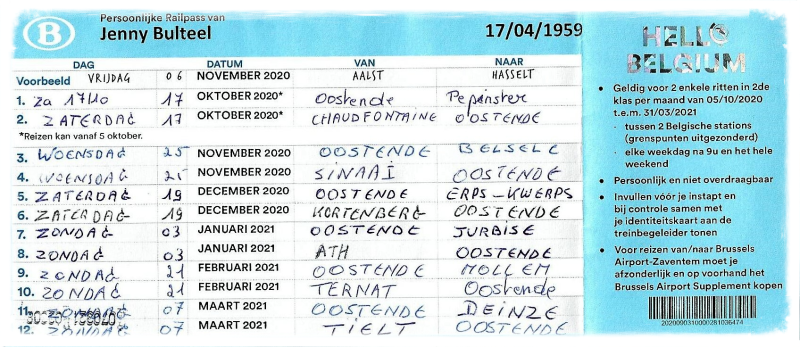 B Persoonlijke Railpass van
Jenny Bulteel 17/04/1959
DAG DATUM VAN NAAR
Voorbeeld VRIJDAG 06 NOVEMBER 2020 AALST HASSELT
1. Za 17/10 17 OKTOBER 2020* Oostende Pepinster
2. ZATERDAG 17 OKTOBER 2020* CHAUDFONTAINE OOSTENDE
*Reizen kan vanaf 5 oktober.
3. WOENSDAG 25 NOVEMBER 2020 OOSTENDE BELSELE
4. WOENSDAG 25 NOVEMBER 2020 SINAAI OOSTENDE
5. ZATERDAG 19 DECEMBER 2020 OOSTENDE ERPS-KWERPS
6. ZATERDAG 19 DECEMBER 2020 KORTENBERG OOSTENDE
7. ZONDAG 03 JANUARI 2021 OOSTENDE JURBISE
8. ZONDAG 03 JANUARI 2021 ATH OOSTENDE
9. ZONDAG 21 FEBRUARI 2021 OOSTENDE MOLLEM
10. ZONDAG 21 FEBRUARI 2021 TERNAT Oostende
11. ZONDAG 07 MAART 2021 OOSTENDE DEINZE
12. ZONDAG 07 MAART 2021 TIELT OOSTENDE
HELLO
BELGIUM
• Geldig voor 2 enkele ritten in 2de
klas per maand van 05/10/2020
t.e.m. 31/03/2021
- tussen 2 Belgische stations
(grenspunten uitgezonderd)
- elke weekdag na 9u en het hele
weekend
• Persoonlijk en niet overdraagbaar
• Invullen vóór je instapt en
bij controle samen met
je identiteitskaart aan de
treinbegeleider tonen
• Voor reizen van/naar Brussels
Airport-Zaventem moet je
afzonderlijk en op voorhand het
Brussels Airport Supplement kopen
2020090310000281036474